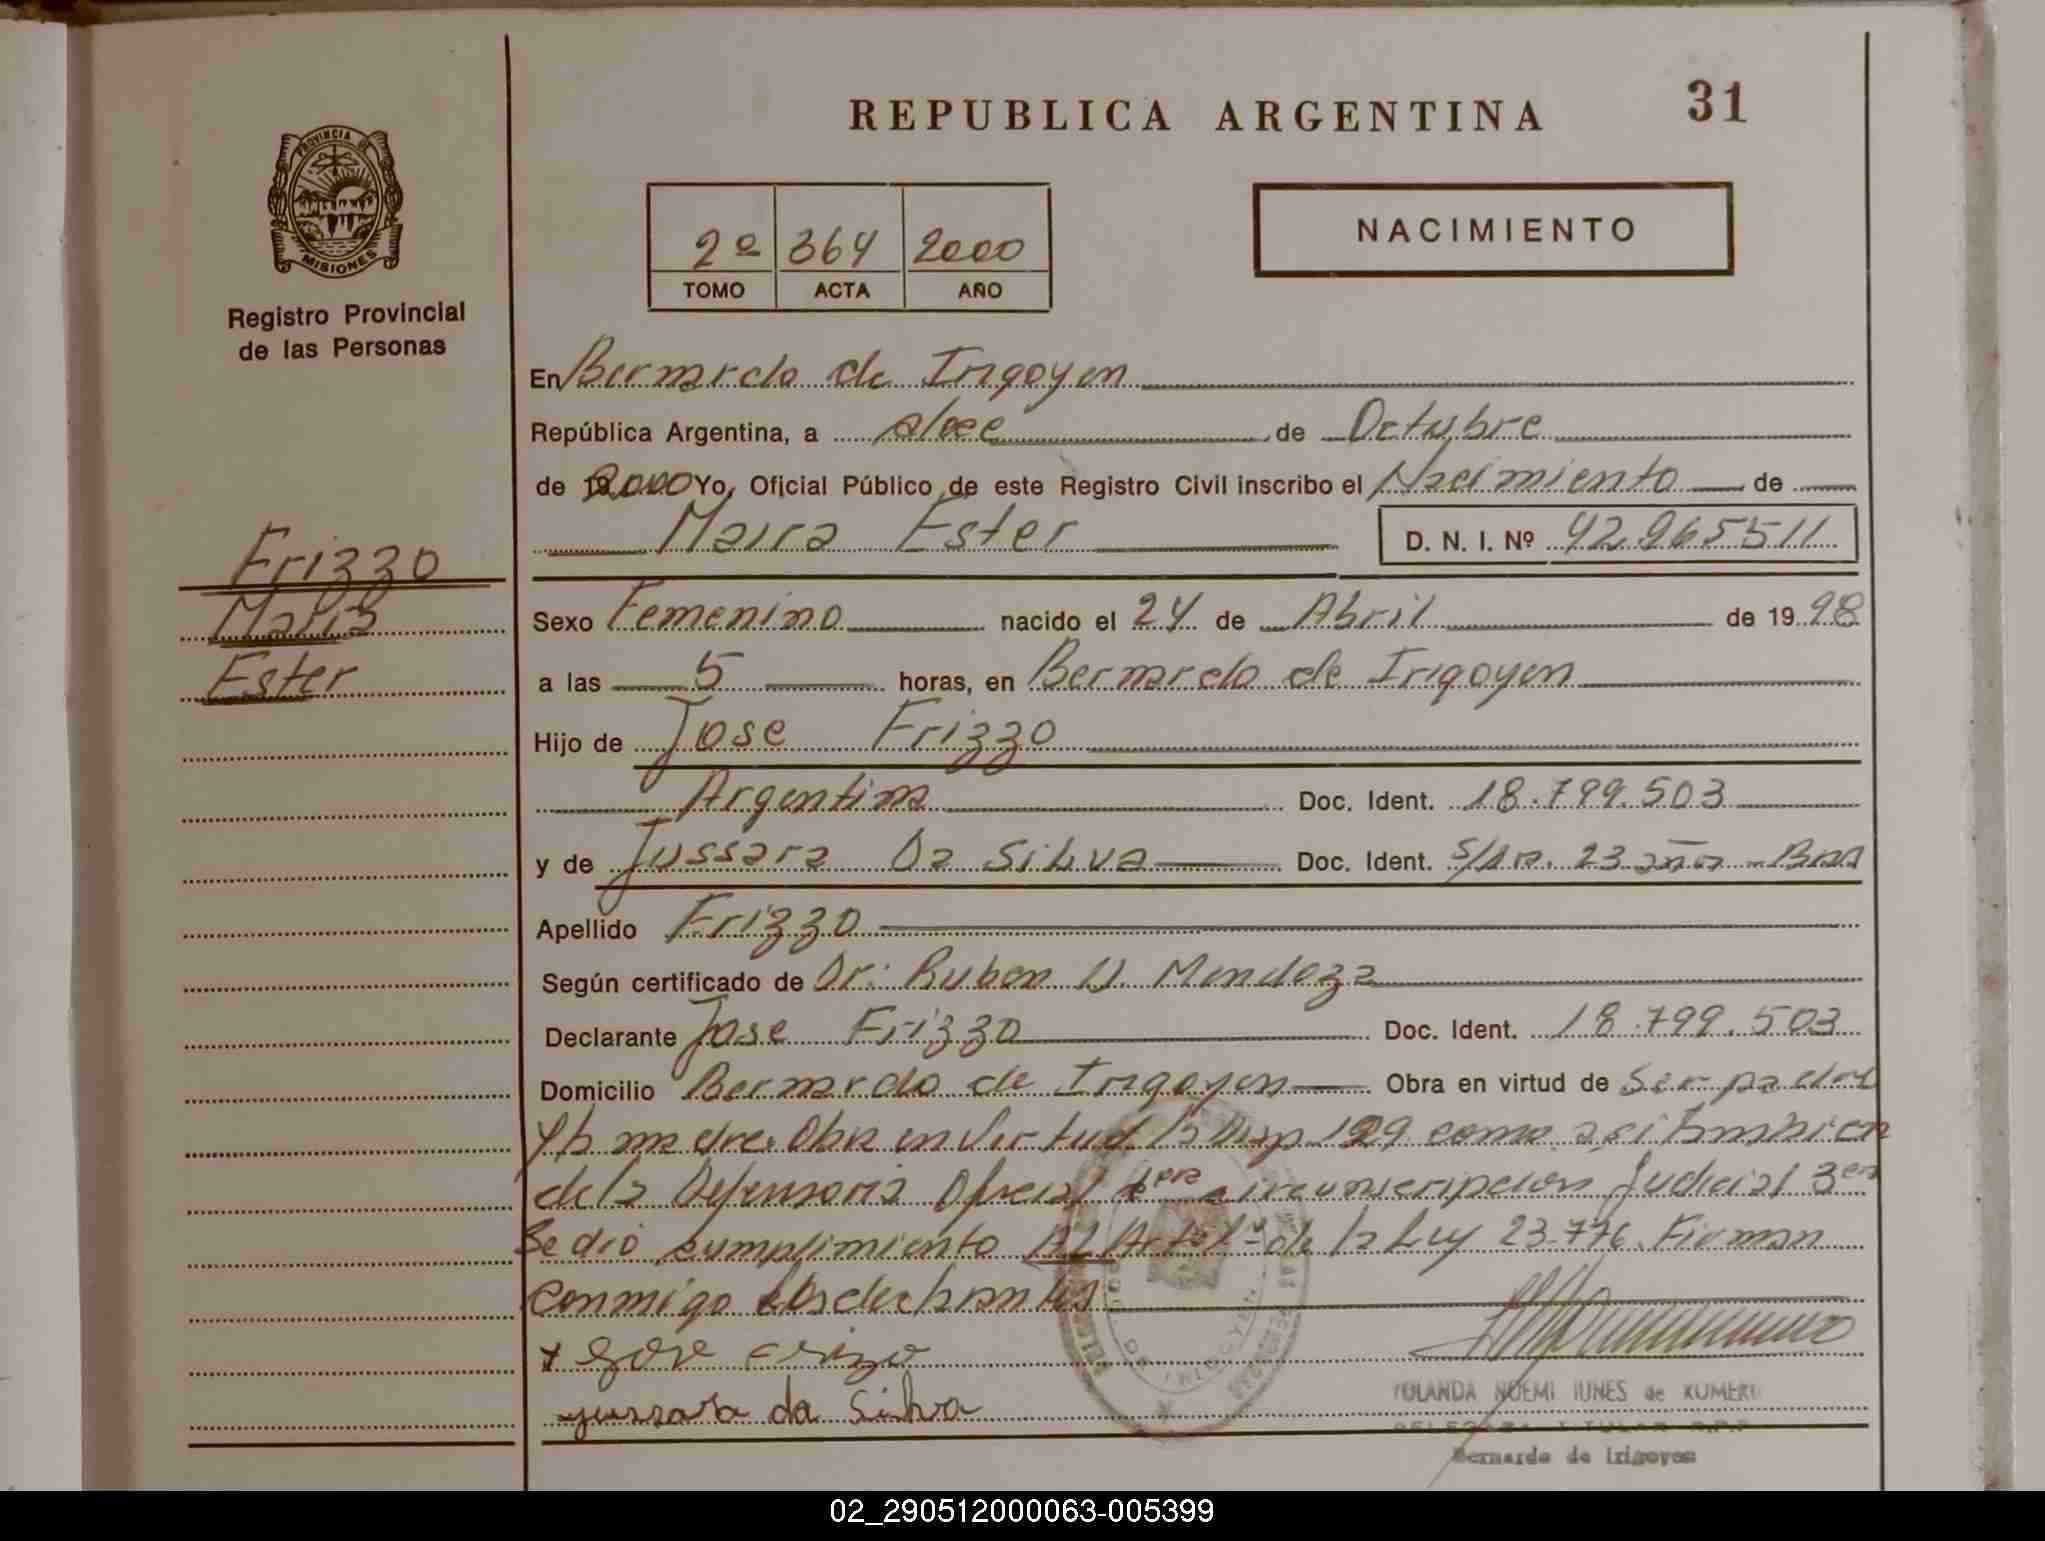 REPUBLICA ARGENTINA
31
PROVINCIA DE MISIONES
Registro Provincial
de las Personas
2º 364 2000
TOMO ACTA AÑO
NACIMIENTO
En Bernardo de Irigoyen
República Argentina, a doce de Octubre
de 2000 Yo, Oficial Público de este Registro Civil inscribo el Nacimiento de
Maira Ester D. N. I. Nº 42.965511
Frizzo
Maira
Ester
Sexo Femenino nacido el 24 de Abril de 1998
a las 5 horas, en Bernardo de Irigoyen
Hijo de Jose Frizzo
Argentina Doc. Ident. 18.799.503
y de Jussara Da Silva Doc. Ident. 23 años
Apellido Frizzo
Según certificado de Dr: Ruben Mendoza
Declarante Jose Frizzo Doc. Ident. 18.799.503
Domicilio Bernardo de Irigoyen Obra en virtud de ser padre
madre. Obra en virtud la Disp 129 como asi tambien
de la Defensoria Oficial 1era circunscripcion Judicial
Se dió cumplimiento Al de la Ley 23.776. Firman
conmigo los declarantes
x Jose Frizo
jussara da Silva
YOLANDA NOEMI IUNES de ROMERO
DELEGADA TITULAR R.P.P.
Bernardo de Irigoyen
02_290512000063-005399